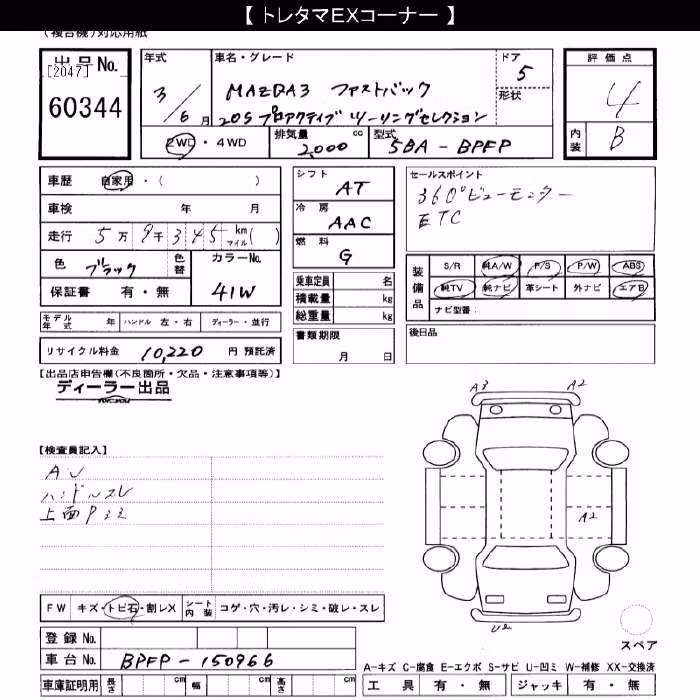 【 トレタマEXコーナー 】
(複合機)対応用紙
出品No.
[2047]
60344
年式
3/6月
車名・グレード
MAZDA3 ファストバック
20S プロアクティブ ツーリングセレクション
ドア
5
形状
2WD・4WD
排気量 cc
2,000
型式
5BA-BPFP
評価点
4
内装
B
車歴 自家用・( )
車検 年 月
走行 5万9千345 km マイル( )
色 ブラック 色替
カラーNo.
41W
保証書 有・無
モデル年式 年 ハンドル 左・右 ディーラー・並行
リサイクル料金 10,220 円 預託済
シフト
AT
冷房
AAC
燃料
G
乗車定員 名
積載量 kg
総重量 kg
書類期限
月 日
セールスポイント
360°ビューモニター
ETC
装備品
S/R 純A/W P/S P/W ABS
純TV 純ナビ 革シート 外ナビ エアB
ナビ型番:
後日品
【出品店申告欄(不良箇所・欠品・注意事項等)】
ディーラー出品
【検査員記入】
AU
ハンドルスレ
上面Pシミ
A3
A2
A2
U2
スペア
FW キズ・トビ石・割レX
シート内装 コゲ・穴・汚レ・シミ・破レ・スレ
登録No.
車台No. BPFP-150966
車庫証明用 長さ cm 幅 cm 高さ cm
A-キズ C-腐食 E-エクボ S-サビ U-凹ミ W-補修 XX-交換済
工具 有・無 ジャッキ 有・無